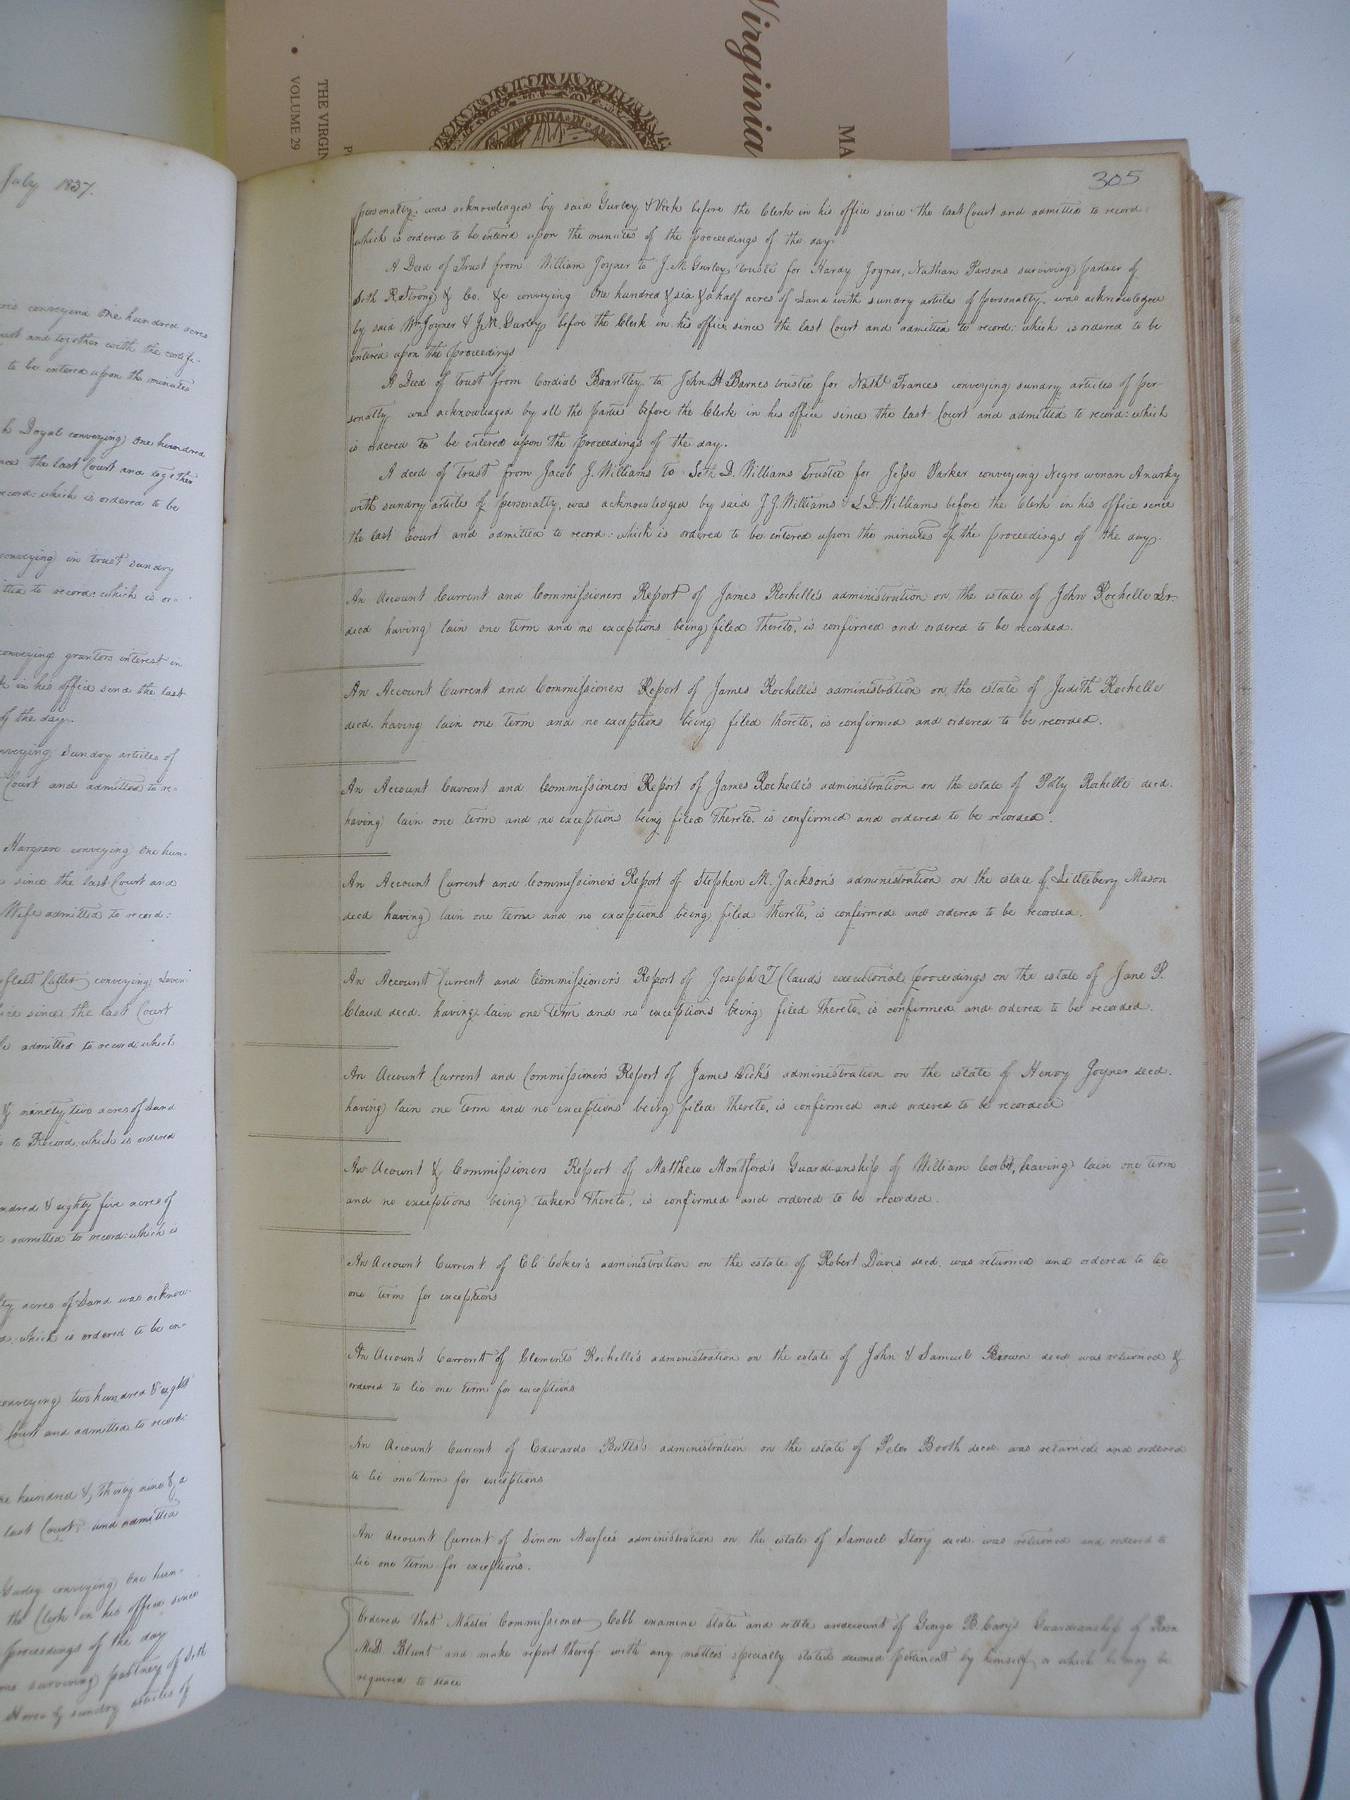 Virginia
MA
THE VIRGIN
VOLUME 29
VIRGINIA
July 1837.
conveying One hundred acres
and together with the certifi-
to be entered upon the minutes
Doyal conveying One hundred
the last Court and together
record: which is ordered to be
conveying in trust sundry
to record: which is or-
conveying grantors interest in
in his office since the last
of the day.
conveying sundry articles of
Court and admitted to re-
Hargrave conveying One hun-
since the last Court and
Wife admitted to record:
conveying Seven
since the last Court
admitted to record: which
& ninety two acres of Land
to Record: which is ordered
hundred & eighty five acres of
admitted to record: which is
acres of Land was acknow-
which is ordered to be en-
conveying two hundred & eight
Court and admitted to record:
hundred & thirty nine & a
last Court and admitted
Gurley conveying One hun-
the Clerk in his office since
proceedings of the day
surviving partner of Seth
& sundry articles of
305
personalty, was acknowledged by said Gurley & Vick before the Clerk in his office since the last Court and admitted to record:
which is ordered to be entered upon the minutes of the proceedings of the day.
A Deed of Trust from William Joyner to J. M. Gurley trustee for Hardy Joyner, Nathan Parsons surviving partner of
Seth & Co. &c conveying One hundred & six & a half acres of Land with sundry articles of personalty, was acknowledged
by said Wm Joyner & J. M. Gurley before the Clerk in his office since the last Court and admitted to record: which is ordered to be
entered upon the proceedings
A Deed of trust from Cordial Brantley to John H Barnes trustee for Nathl Frances conveying sundry articles of per-
sonalty was acknowledged by all the parties before the Clerk in his office since the last Court and admitted to record: which
is ordered to be entered upon the proceedings of the day.
A deed of trust from Jacob J. Williams to Seth D. Williams Trustee for Jesse Parker conveying Negro woman
with sundry articles of personalty, was acknowledged by said J. J. Williams & S. D. Williams before the Clerk in his office since
the last Court and admitted to record: which is ordered to be entered upon the minutes of the proceedings of the day.
An Account Current and Commissioners Report of James Rochelle's administration on the estate of John Rochelle Sr
decd having lain one term and no exceptions being filed thereto, is confirmed and ordered to be recorded.
An Account Current and Commissioners Report of James Rochelle's administration on the estate of Judith Rochelle
decd. having lain one term and no exceptions being filed thereto, is confirmed and ordered to be recorded.
An Account Current and Commissioners Report of James Rochelle's administration on the estate of Polly Rochelle decd.
having lain one term and no exceptions being filed thereto, is confirmed and ordered to be recorded.
An Account Current and Commissioners Report of Stephen M. Jackson's administration on the estate of Littlebery Mason
decd having lain one term and no exceptions being filed thereto, is confirmed and ordered to be recorded.
An Account Current and Commissioner's Report of Joseph T Claud's executorial proceedings on the estate of Jane P.
Claud decd. having lain one term and no exceptions being filed thereto, is confirmed and ordered to be recorded.
An Account Current and Commissioner's Report of James Vick's administration on the estate of Henry Joyner decd.
having lain one term and no exceptions being filed thereto, is confirmed and ordered to be recorded
An Account & Commissioners Report of Matthew Montford's Guardianship of William having lain one term
and no exceptions being taken thereto, is confirmed and ordered to be recorded.
An Account Current of Eli Coker's administration on the estate of Robert Davis decd. was returned and ordered to lie
one term for exceptions
An Account Current of Clements Rochelle's administration on the estate of John & Samuel Brown decd was returned &
ordered to lie one term for exceptions
An Account Current of Edwards Butts's administration on the estate of Peter Booth decd. was returned and ordered
to lie one term for exceptions
An Account Current of Simon Murfee's administration on the estate of Samuel Story decd. was returned and ordered to
lie one term for exceptions.
Ordered that Master Commissioner Cobb examine state and settle an account of George B. Cary's Guardianship of
Blunt and make report thereof with any matters specially stated deemed pertinent by himself or which he may be
required to state